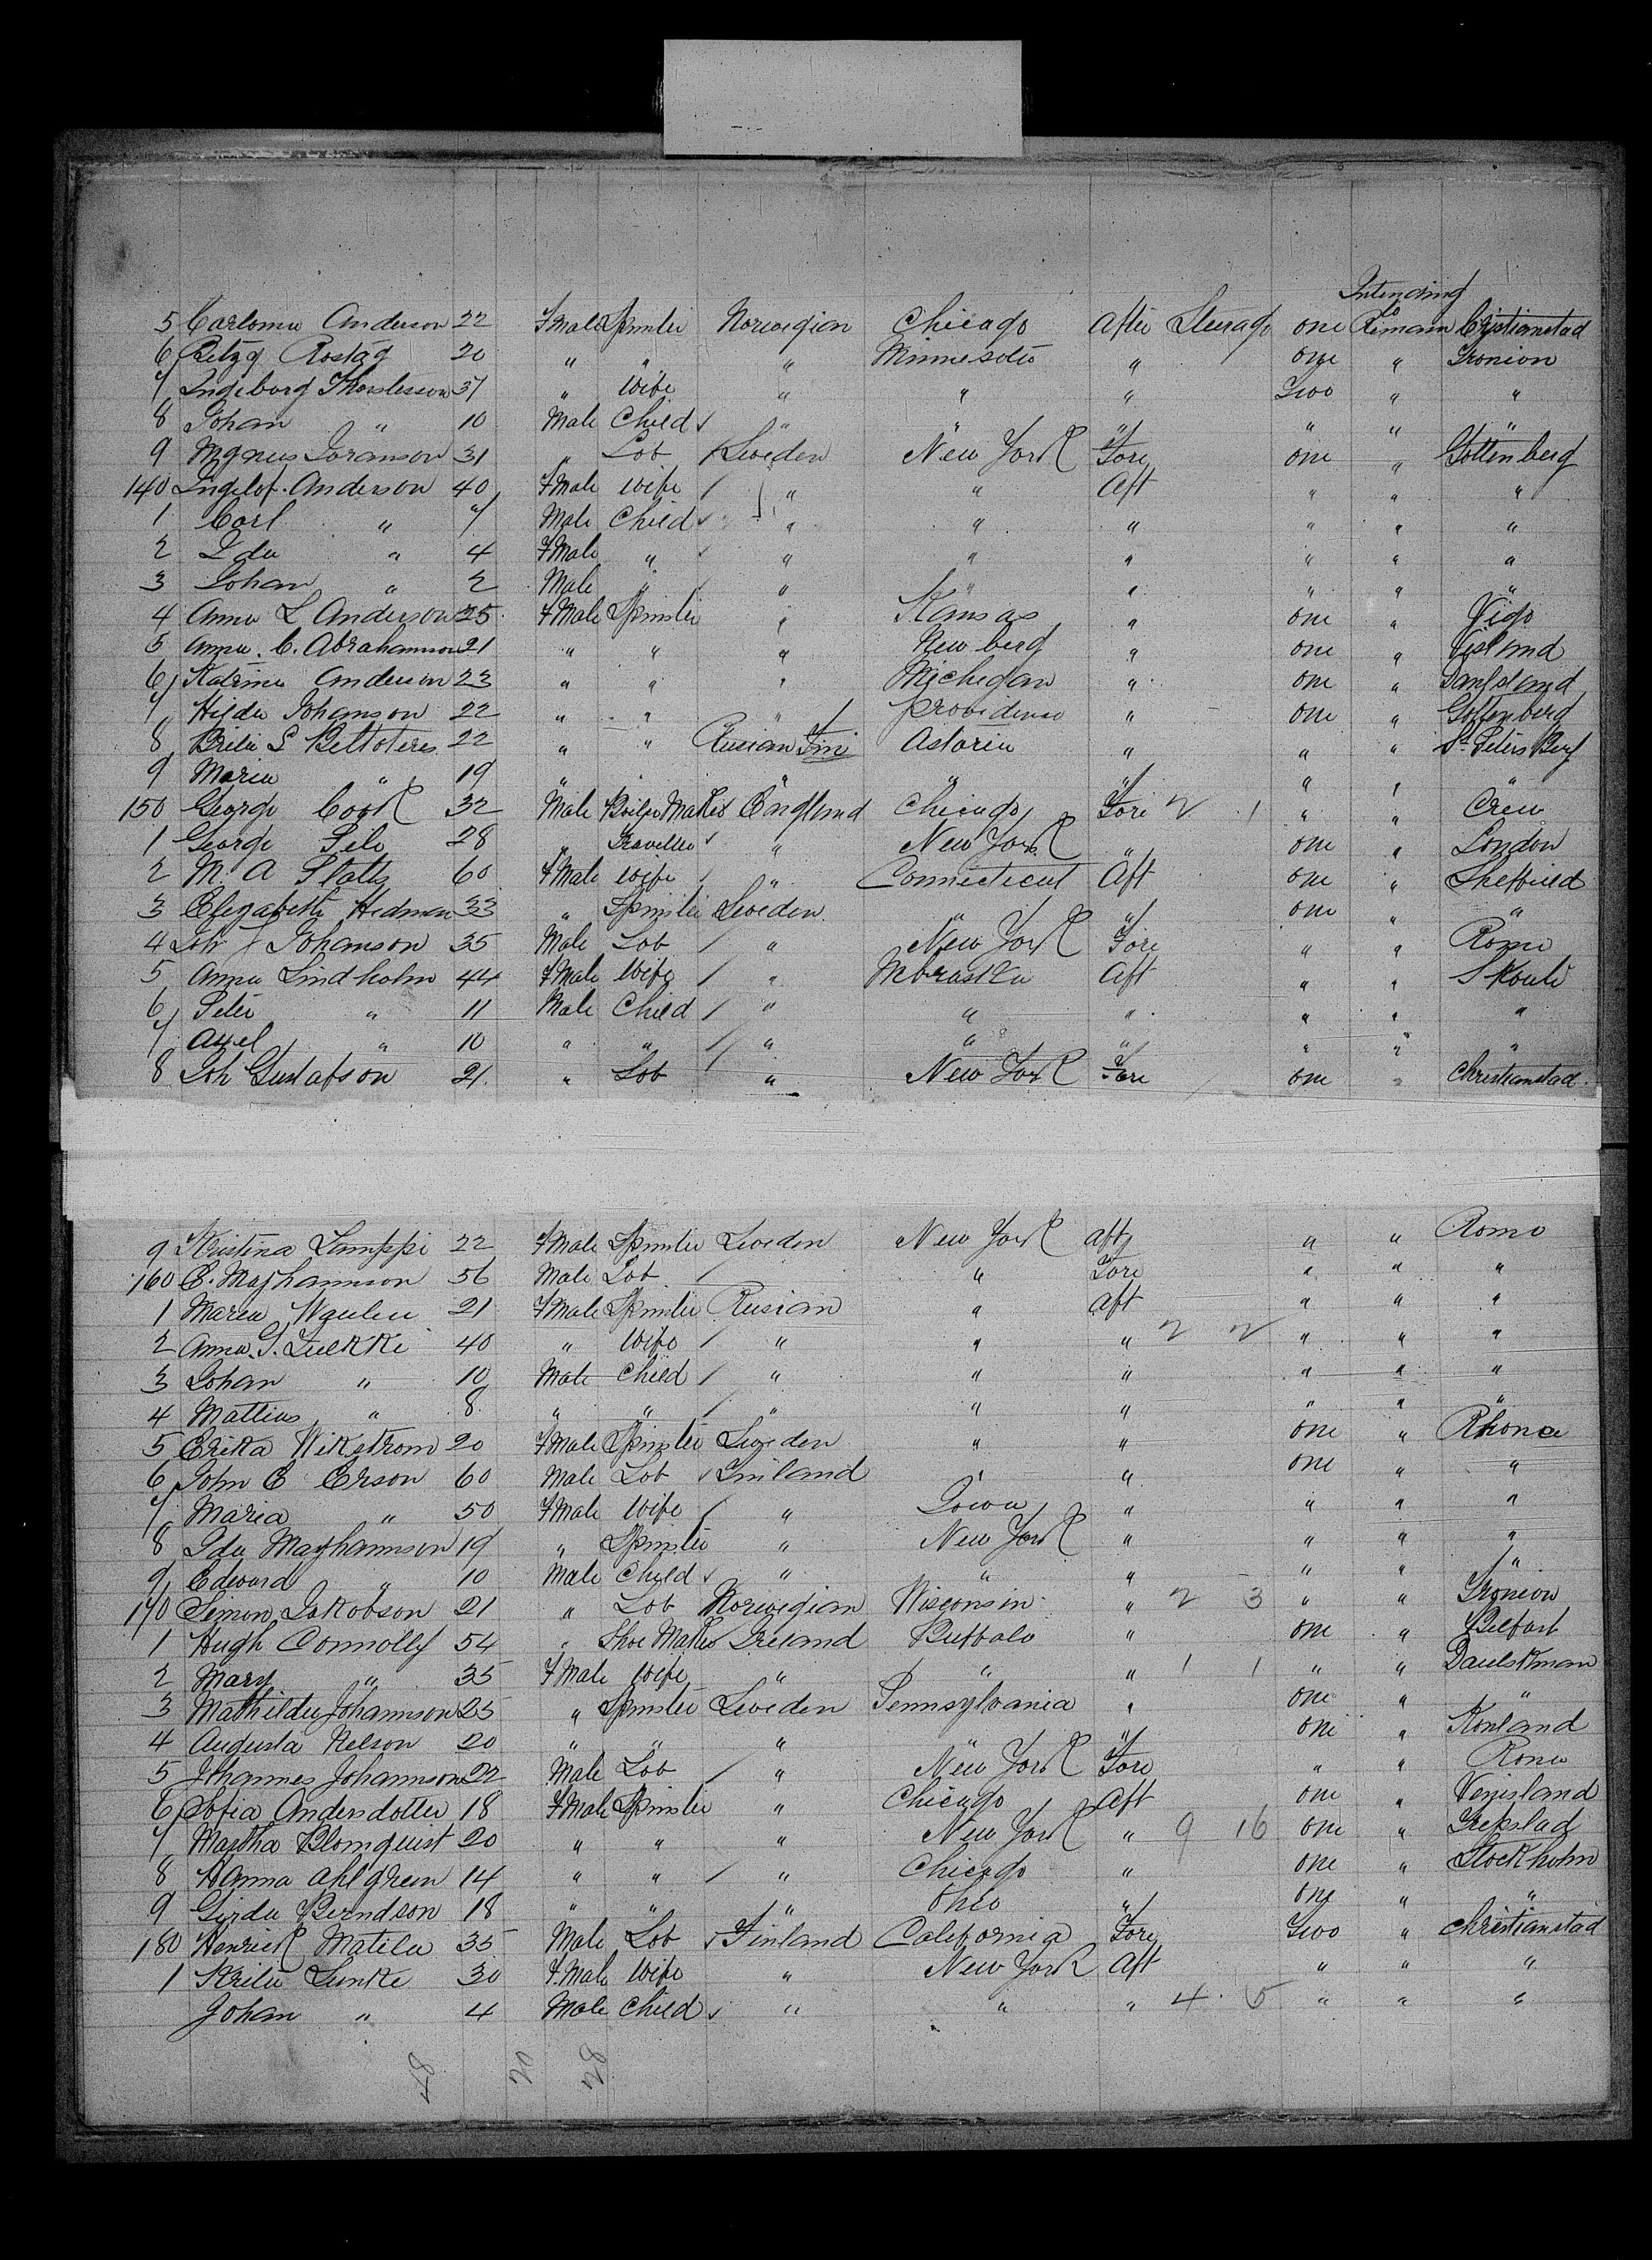 Intending
5 Carloma Anderson 22 F Male Spinster Norwegian Chicago After Steerage one to Remain Cristianstad
6 Rostag 20 " " " Minnesota " one " Tronion
7 Ingeborg 37 " Wife " " " Two " "
8 Johan " 10 Male Child " " " " " "
9 Mgnus Joranson 31 " Lob Sweden New York Fore one " Gottenberg
140 Ingelof. Anderson 40 F Male Wife " " Aft " " "
1 Carl " 7 Male Child " " " " " "
2 Ida " 4 F Male " " " " " " "
3 Johan " 2 Male " " " " " " "
4 Anna L Anderson 25 F Male Spinster " Kansas " one " Vigo
5 Anna. C. Abrahamson 21 " " " New berg " one "
6 Katrina Anderson 23 " " " Michegan " one "
7 Hilda Johanson 22 " " " providence " one " Gottenberg
8 Brita S 22 " " Rusian Fin Astoria " " " St Peters Berg
9 Maria " 19 " " " " " " "
150 George Cook 32 Male Boiler Maker England Chicago Fore 2 1 " " Crew
1 George 28 " Traveller " New York " one " London
2 M. A Statts 60 F Male Wife " Connecticut Aft one " Sheffield
3 Elizabeth Hedman 33 " Spinster Sweden " " one " "
4 Joh J Johanson 35 Male Lob " New York Fore " " Romo
5 Anna Lindholm 44 F Male Wife " Nbraska Aft " "
6 Peter " 11 Male Child " " " " " "
7 Axel " 10 " " " " " " " "
8 Joh Gustafson 21 " Lob " New York Fore one " Christianstad
9 Kristina Lamppi 22 F Male Spinster Sweden New York aft " " Romo
160 E. Majhannson 56 Male Lob " Fore " " "
1 Maria 21 F Male Spinster Rusian " aft " " "
2 Anna. G. 40 " Wife " " " 2 2 " " "
3 Johan " 10 Male Child " " " " " "
4 Mattias " 8 " " " " " " " "
5 Erika Wikstrom 20 F Male Spinster Sweden " " one " Rhona
6 John E Erson 60 Male Lob Finland " " one " "
7 Maria " 50 F Male Wife " Iowa " " " "
8 Ida Mayhannson 19 " Spinster " New York " " " "
9 Edward " 10 Male Child " " " " " "
170 Simon Jakobson 21 " Lob Norwegian Wisconsin " 2 3 " " Tronion
1 Hugh Connolly 54 " Shoe Maker Ireland Buffalo " one " Belfast
2 Mary " 35 F Male Wife " " " 1 1 " "
3 Mathilda Johannson 25 " Spinster Sweden Pennsylvania " one " "
4 Augusta Nelson 20 " " " " " one " Konland
5 Johannes Johannson 22 Male Lob " New York Fore " " Rona
6 Sofia Andersdotter 18 F Male Spinster " Chicago Aft one "
7 Martha Blomquist 20 " " " New York " 9 16 one "
8 Hanna Ahlgren 14 " " " Chicago " one " Stockholm
9 Gerda Berndson 18 " " " Ohio " one " "
180 Henrick Matila 35 Male Lob Finland California Fore Two " Christianstad
1 Lunke 30 F. Male Wife " New York Aft " " "
Johan " 4 Male Child " " " 4. 5 " " "